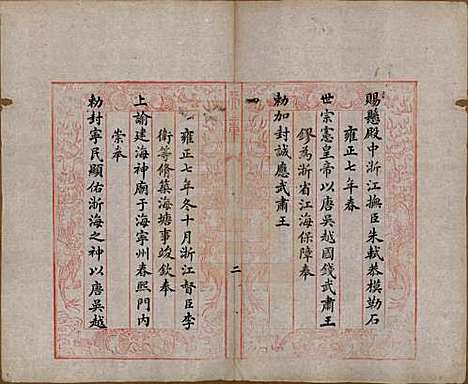 賜懸殿中浙江撫臣朱軾恭模勒石
雍正七年春
世宗憲皇帝以唐吳越國錢武肅王
鏐為浙省江海保障奉
勅加封誠應武肅王
一
二
一雍正七年冬十月浙江督臣李
衛等修築海塘事竣欽奉
上諭建海神廟于海寧州春熙門內
崇奉
勅封寧民顯佑浙海之神以唐吳越